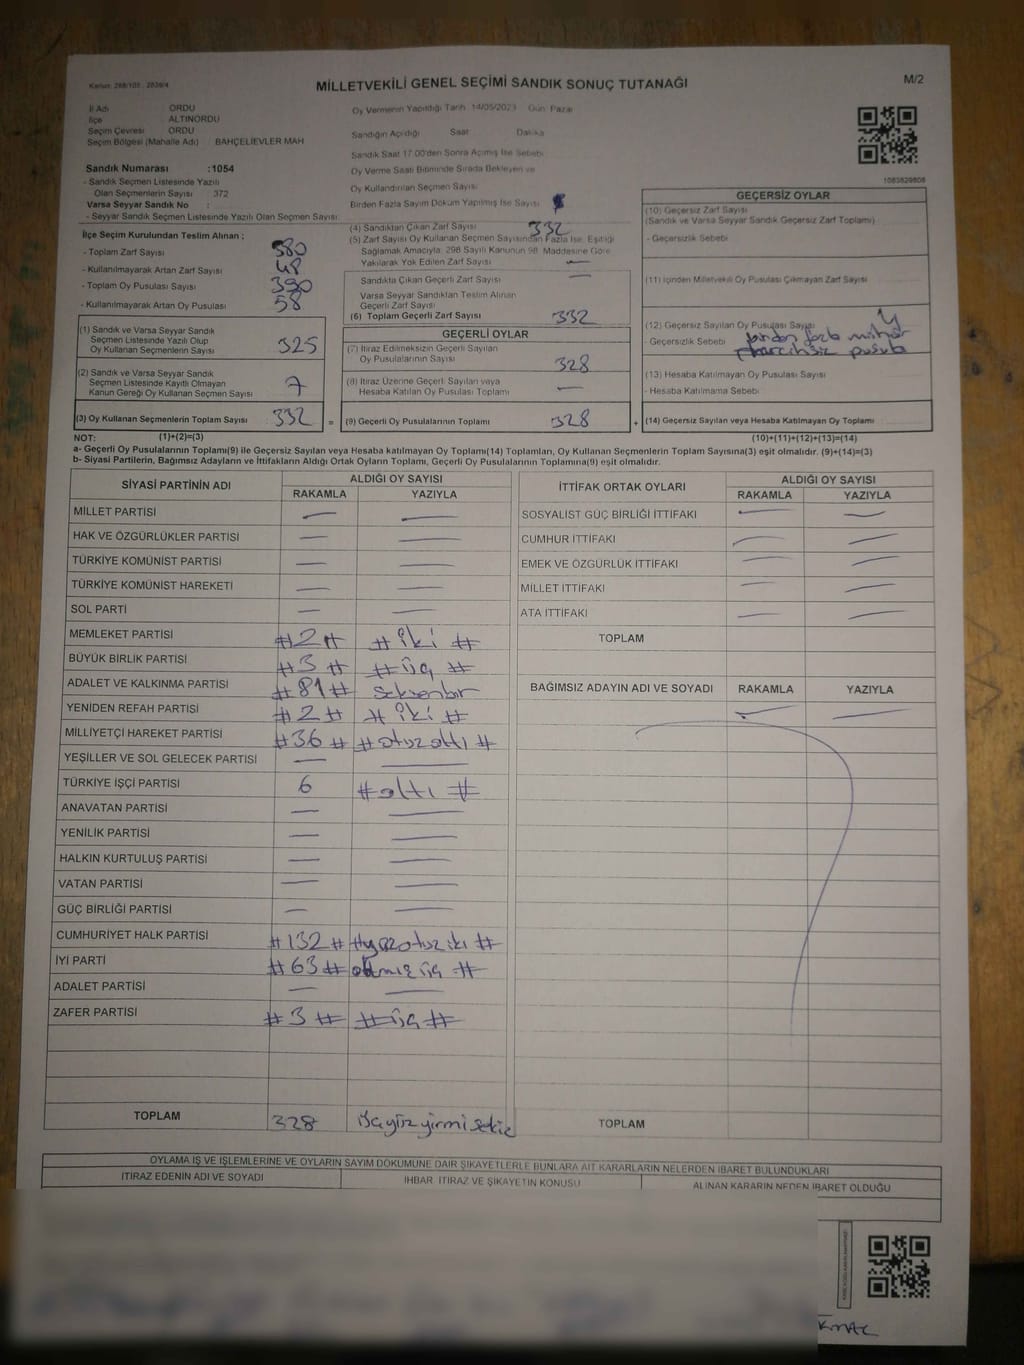 MİLLETVEKİLİ GENEL SEÇİMİ SANDIK SONUÇ TUTANAĞI
M/2
İl Adı ORDU
İlçe ALTINORDU
Seçim Çevresi ORDU
Seçim Bölgesi (Mahalle Adı) BAHÇELİEVLER MAH
Oy Vermenin Yapıldığı Tarih 14/05/2023 Gün Pazar
Sandığın Açıldığı Saat Dakika
Sandık Saat 17:00'den Sonra Açılmış İse Sebebi
Oy Verme Saati Bitiminde Sırada Bekleyen ve
Oy Kullandırılan Seçmen Sayısı
Birden Fazla Sayım Döküm Yapılmış İse Sayısı
Sandık Numarası :1054
- Sandık Seçmen Listesinde Yazılı
Olan Seçmenlerin Sayısı : 372
Varsa Seyyar Sandık No :
- Seyyar Sandık Seçmen Listesinde Yazılı Olan Seçmen Sayısı:
İlçe Seçim Kurulundan Teslim Alınan ;
- Toplam Zarf Sayısı
- Kullanılmayarak Artan Zarf Sayısı 48
- Toplam Oy Pusulası Sayısı 390
- Kullanılmayarak Artan Oy Pusulası 58
(1) Sandık ve Varsa Seyyar Sandık
Seçmen Listesinde Yazılı Olup
Oy Kullanan Seçmenlerin Sayısı 325
(2) Sandık ve Varsa Seyyar Sandık
Seçmen Listesinde Kayıtlı Olmayan
Kanun Gereği Oy Kullanan Seçmen Sayısı 7
(3) Oy Kullanan Seçmenlerin Toplam Sayısı 332 =
(4) Sandıktan Çıkan Zarf Sayısı 332
(5) Zarf Sayısı Oy Kullanan Seçmen Sayısından Fazla İse, Eşitliği
Sağlamak Amacıyla, 298 Sayılı Kanunun 98. Maddesine Göre
Yakılarak Yok Edilen Zarf Sayısı —
Sandıkta Çıkan Geçerli Zarf Sayısı —
Varsa Seyyar Sandıktan Teslim Alınan
Geçerli Zarf Sayısı
(6) Toplam Geçerli Zarf Sayısı 332
GEÇERLİ OYLAR
(7) İtiraz Edilmeksizin Geçerli Sayılan
Oy Pusulalarının Sayısı 328
(8) İtiraz Üzerine Geçerli Sayılan veya
Hesaba Katılan Oy Pusulası Toplamı —
(9) Geçerli Oy Pusulalarının Toplamı 328 +
1083829808
GEÇERSİZ OYLAR
(10) Geçersiz Zarf Sayısı
(Sandık ve Varsa Seyyar Sandık Geçersiz Zarf Toplamı)
- Geçersizlik Sebebi
(11) İçinden Milletvekili Oy Pusulası Çıkmayan Zarf Sayısı
(12) Geçersiz Sayılan Oy Pusulası Sayısı 4
- Geçersizlik Sebebi birden fazla mühür
pusula
(13) Hesaba Katılmayan Oy Pusulası Sayısı
- Hesaba Katılmama Sebebi
(14) Geçersiz Sayılan veya Hesaba Katılmayan Oy Toplamı
NOT: (1)+(2)=(3) (10)+(11)+(12)+(13)=(14)
a- Geçerli Oy Pusulalarının Toplamı(9) ile Geçersiz Sayılan veya Hesaba katılmayan Oy Toplamı(14) Toplamları, Oy Kullanan Seçmenlerin Toplam Sayısına(3) eşit olmalıdır. (9)+(14)=(3)
b- Siyasi Partilerin, Bağımsız Adayların ve İttifakların Aldığı Ortak Oyların Toplamı, Geçerli Oy Pusulalarının Toplamına(9) eşit olmalıdır.
SİYASİ PARTİNİN ADI ALDIĞI OY SAYISI
RAKAMLA YAZIYLA
MİLLET PARTİSİ — —
HAK VE ÖZGÜRLÜKLER PARTİSİ — —
TÜRKİYE KOMÜNİST PARTİSİ — —
TÜRKİYE KOMÜNİST HAREKETİ — —
SOL PARTİ — —
MEMLEKET PARTİSİ #2# #iki#
BÜYÜK BİRLİK PARTİSİ #3# #üç#
ADALET VE KALKINMA PARTİSİ #81# seksenbir
YENİDEN REFAH PARTİSİ #2# #iki#
MİLLİYETÇİ HAREKET PARTİSİ #36# #otuzaltı#
YEŞİLLER VE SOL GELECEK PARTİSİ — —
TÜRKİYE İŞÇİ PARTİSİ 6 #altı#
ANAVATAN PARTİSİ — —
YENİLİK PARTİSİ — —
HALKIN KURTULUŞ PARTİSİ — —
VATAN PARTİSİ — —
GÜÇ BİRLİĞİ PARTİSİ — —
CUMHURİYET HALK PARTİSİ #132# #yüzotuziki#
İYİ PARTİ #63# altmışüç#
ADALET PARTİSİ — —
ZAFER PARTİSİ #3# #üç#
TOPLAM 328 üçyüzyirmisekiz
İTTİFAK ORTAK OYLARI ALDIĞI OY SAYISI
RAKAMLA YAZIYLA
SOSYALİST GÜÇ BİRLİĞİ İTTİFAKI — —
CUMHUR İTTİFAKI — —
EMEK VE ÖZGÜRLÜK İTTİFAKI — —
MİLLET İTTİFAKI — —
ATA İTTİFAKI — —
TOPLAM
BAĞIMSIZ ADAYIN ADI VE SOYADI RAKAMLA YAZIYLA
— —
TOPLAM
OYLAMA İŞ VE İŞLEMLERİNE VE OYLARIN SAYIM DÖKÜMÜNE DAİR ŞİKAYETLERLE BUNLARA AİT KARARLARIN NELERDEN İBARET BULUNDUKLARI
İTİRAZ EDENİN ADI VE SOYADI İHBAR İTİRAZ VE ŞİKAYETİN KONUSU ALINAN KARARIN NEDEN İBARET OLDUĞU